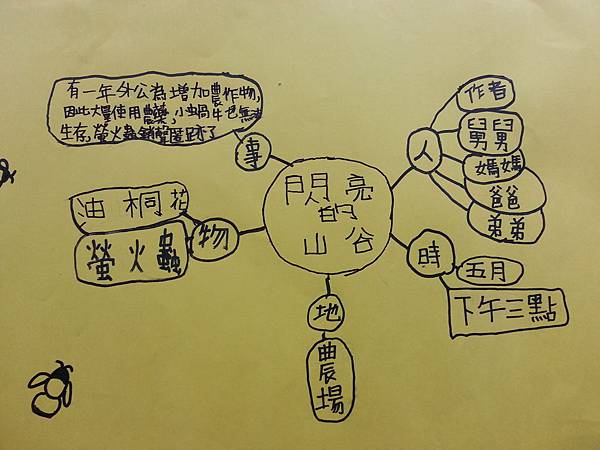 閃亮
的
山谷
事
有一年外公為增加農作物,
因此大量使用農藥,小蝸牛也無法
生存,螢火蟲銷聲匿跡了
人
作者
舅舅
媽媽
爸爸
弟弟
時
五月
下午三點
地
農場
物
油桐花
螢火蟲